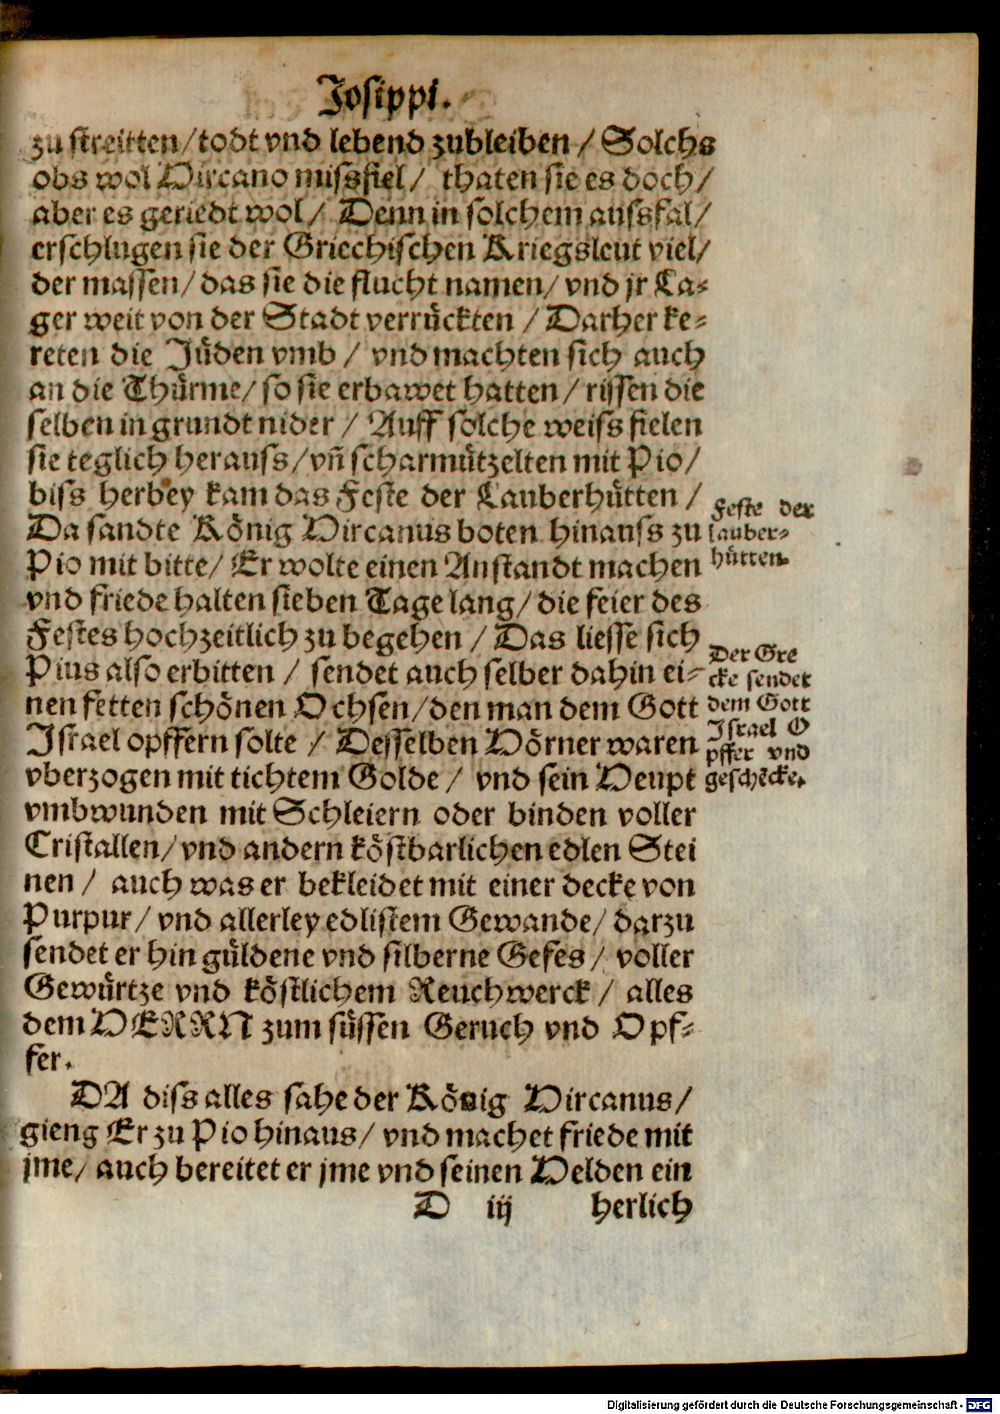 Josippi.
zu streitten/todt vnd lebend zubleiben / Solchs
obs wol Hircano missfiel / thaten sie es doch/
aber es geriedt wol / Denn in solchem aussfal/
erschlugen sie der Griechischen Kriegsleut viel/
der massen/das sie die flucht namen/ vnd jr La-
ger weit von der Stadt verrückten / Darher ke-
reten die Jüden vmb / vnd machten sich auch
an die Thürme/so sie erbawet hatten / rissen die
selben in grundt nider / Auff solche weiss fielen
sie teglich herauss/vn̄ scharmützelten mit Pio/
biss herbey kam das Feste der Lauberhütten /
Feste der
Lauber-
hütten.
Da sandte König Hircanus boten hinauss zu
Pio mit bitte/ Er wolte einen Anstandt machen
vnd friede halten sieben Tage lang/die feier des
Festes hochzeitlich zu begehen / Das liesse sich
Pius also erbitten / sendet auch selber dahin ei-
Der Gre
cke sendet
dem Gott
Israel O
pffer vnd
geschēcke.
nen fetten schönen Ochsen/den man dem Gott
Israel opffern solte / Desselben Hörner waren
vberzogen mit tichtem Golde / vnd sein Heupt
vmbwunden mit Schleiern oder binden voller
Cristallen/vnd andern köstbarlichen edlen Stei
nen / auch was er bekleidet mit einer decke von
Purpur/ vnd allerley edlistem Gewande/ darzu
sendet er hin güldene vnd silberne Gefes/ voller
Gewürtze vnd köstlichem Reuchwerck / alles
dem HERRN zum süssen Geruch vnd Opf-
fer.
DA diss alles sahe der König Hircanus/
gieng Er zu Pio hinaus/ vnd machet friede mit
jme/ auch bereitet er jme vnd seinen Helden ein
D iij herlich
Digitalisierung gefördert durch die Deutsche Forschungsgemeinschaft - DFG